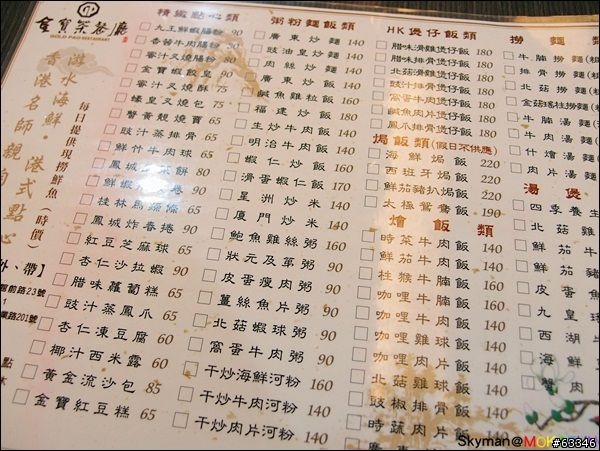 金寶茶餐廳
GOLD PAO RESTAURANT
游水海鮮·港式點心
香港名師親自
每日提供現撈鮮魚(時價)
外、帶】
精緻點心類
九王鮮蝦腸粉 90
香茜牛肉腸粉
蜜汁叉燒腸粉
金寶蝦餃皇 90
蜜汁叉燒酥 75
蠔皇叉燒包 75
蟹黃靚燒賣
豉汁蒸排骨 65
鮮竹牛肉球 65
桂林馬蹄條
鳳城炸春捲 90
紅豆芝麻球 60
杏仁沙拉蝦 90
腊味蘿蔔糕 65
豉汁蒸鳳爪 65
杏仁凍豆腐 60
椰汁西米露 60
黃金流沙包 85
金寶紅豆糕 65
粥粉麵飯類
廣東炒麵 140
豉油皇炒麵 140
肉絲炒麵 140
廣東炒飯 140
鹹魚雞粒飯 160
福建炒飯 160
生炒牛肉飯 140
明治牛肉飯 140
蝦仁炒飯 160
滑蛋蝦仁飯 170
星洲炒米 140
廈門炒米 140
鮑魚雞絲粥 160
狀元及第粥 90
皮蛋瘦肉粥 90
薑絲魚片粥 90
北菇蝦球粥 90
窩蛋牛肉粥 90
干炒海鮮河粉 160
干炒牛肉河粉 140
干炒肉片河粉 140
HK煲仔飯類
腊味滑雞煲仔飯 180
腊味排骨煲仔飯 180
北菇滑雞煲仔飯 180
豉汁排骨煲仔飯 180
窩蛋牛肉煲仔飯 180
鹹魚肉片煲仔飯 180
鳳爪排骨煲仔飯 180
焗飯類(假日不供應)
海鮮焗飯 220
西班牙焗飯 220
鮮茄豬扒焗飯 220
太極鴛鴦飯 190
燴飯類
時菜牛肉飯 140
鮮茄牛肉飯 140
柱猴牛腩飯 160
咖哩牛腩飯 160
咖哩牛肉飯 140
咖哩雞球飯 140
咖哩肉片飯 140
北菇雞球飯 140
豉椒排骨飯 140
時蔬肉片飯 140
撈麵類
牛腩撈麵
排骨撈麵
北菇撈麵
金菇撈麵
牛腩湯麵
牛肉湯麵
什燴湯麵
肉片湯麵
湯煲
四季養生
北菇
鮮茄牛
鮮茄豬
皮蛋魚
九皇
西湖
海鮮
蟹肉
Skyman@Mo #63346